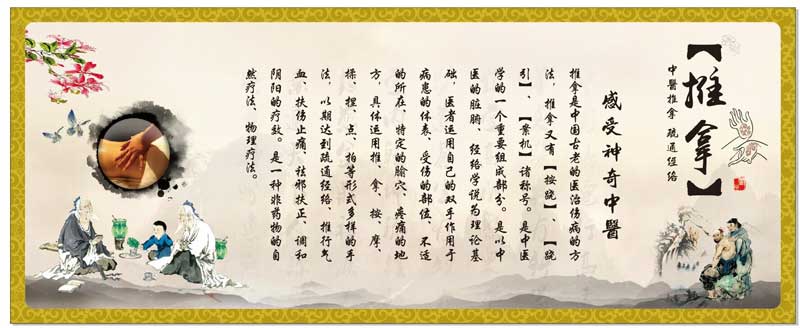 【推拿】
中醫推拿 疏通經絡
感受神奇中醫
推拿是中国古老的医治伤病的方
法，推拿又有【按跷】、【跷
引】、【案机】诸称号。是中医
学的一个重要组成部分。是以中
医的脏腑、经络学说为理论基
础，医者运用自己的双手作用于
病患的体表、受伤的部位、不适
的所在、特定的腧穴、疼痛的地
方，具体运用推、拿、按、摩、
揉、捏、点、拍等形式多样的手
法，以期达到疏通经络、推行气
血、扶伤止痛、祛邪扶正、调和
阴阳的疗效。是一种非药物的自
然疗法、物理疗法。